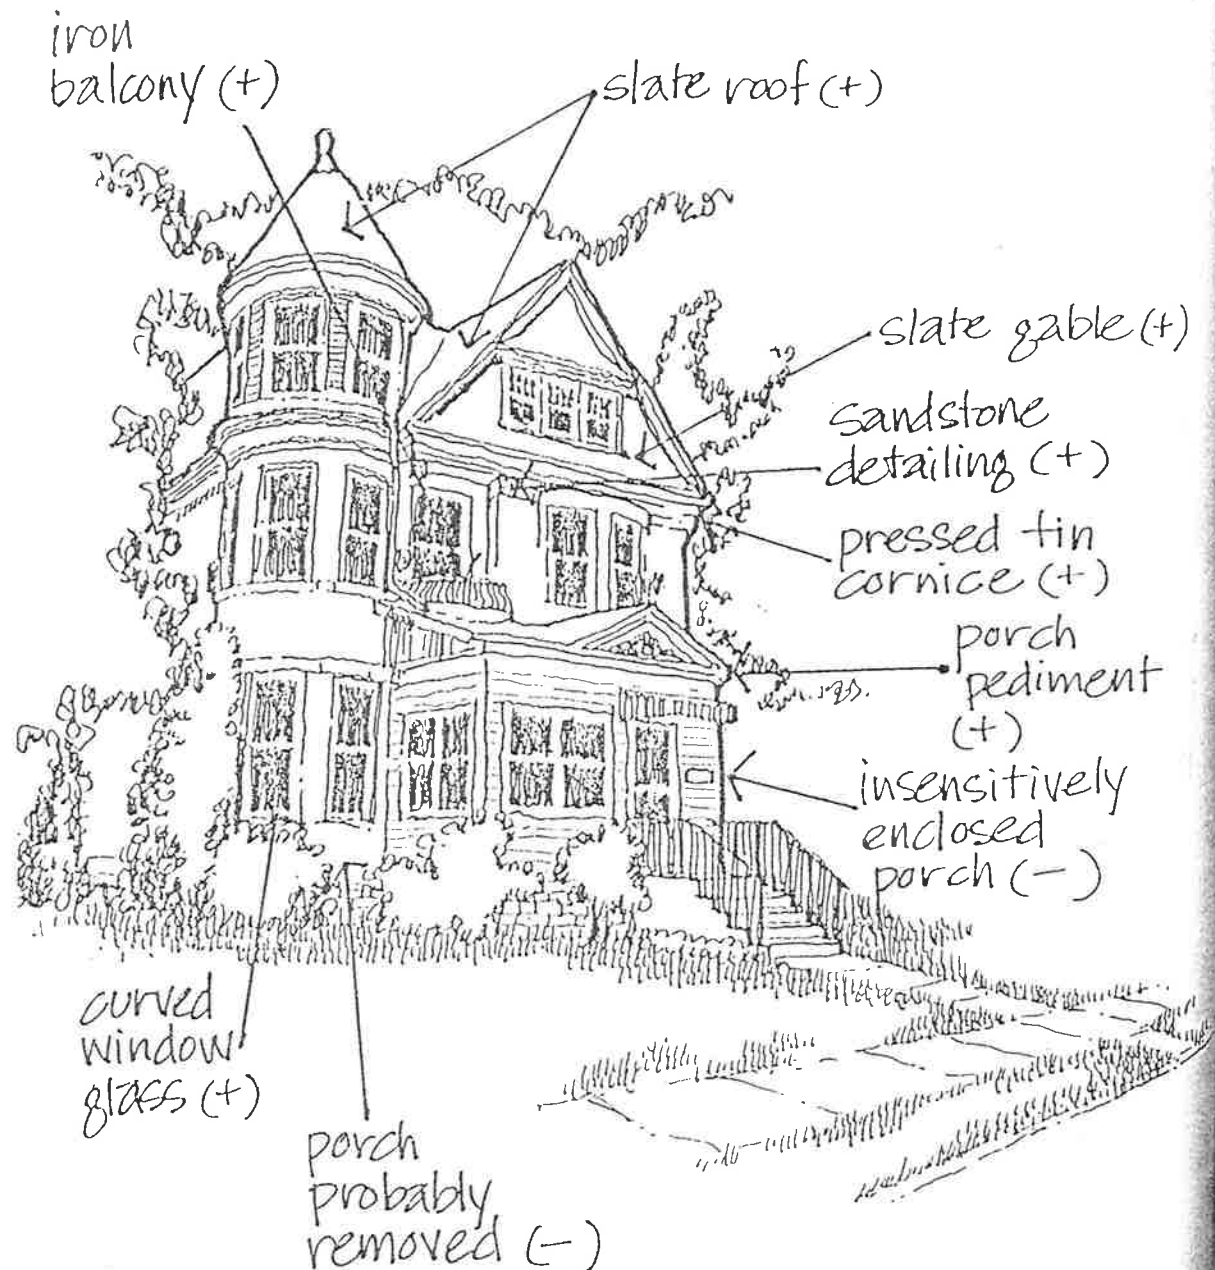 iron
balcony (+)
slate roof (+)
slate gable (+)
sandstone
detailing (+)
pressed tin
cornice (+)
porch
pediment
(+)
insensitively
enclosed
porch (-)
curved
window
glass (+)
porch
probably
removed (-)